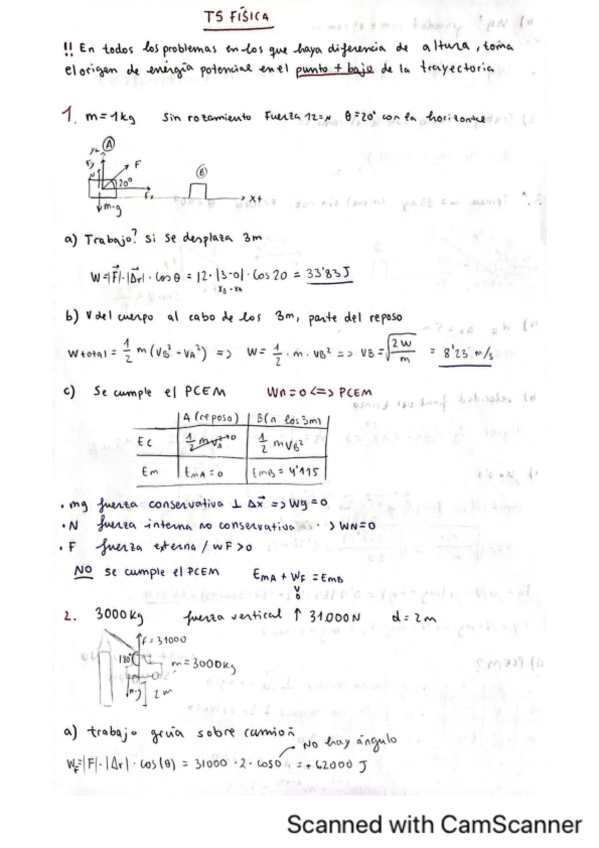 T5 FÍSICA
!! En todos los problemas en los que haya diferencia de altura, toma
el origen de energía potencial en el punto + bajo de la trayectoria
1. m = 1kg Sin rozamiento Fuerza 12=N θ=20° con la horizontal
A
F
20°
B
m·g
x+
a) Trabajo? Si se desplaza 3m
W=|F⃗|·|Δr⃗|·cos θ = 12·|3-0|·cos 20 = 33'83 J
xB-xA
b) V del cuerpo al cabo de los 3m, parte del reposo
Wtotal = 1/2 m (VB² - VA²) => W = 1/2 · m · VB² => VB = √(2W/m) = 8'23 m/s
c) Se cumple el PCEM Wn=0 <=> PCEM
A (reposo) B (a los 3m)
Ec 1/2 m VA² → 0 1/2 m VB²
Em EmA = 0 EmB = 4'115
· mg fuerza conservativa ⊥ Δx⃗ => Wg = 0
· N fuerza interna no conservativa => WN=0
· F fuerza externa / WF>0
NO se cumple el PCEM EmA + WF = EmB
2. 3000kg fuerza vertical ↑ 31000N d = 2m
F = 31000
180°
m = 3000kg
m·g
2 m
a) trabajo grúa sobre camión
No hay ángulo
WF=|F|·|Δr|·cos(θ) = 31000 · 2 · cos 0 = + 62000 J
Scanned with CamScanner